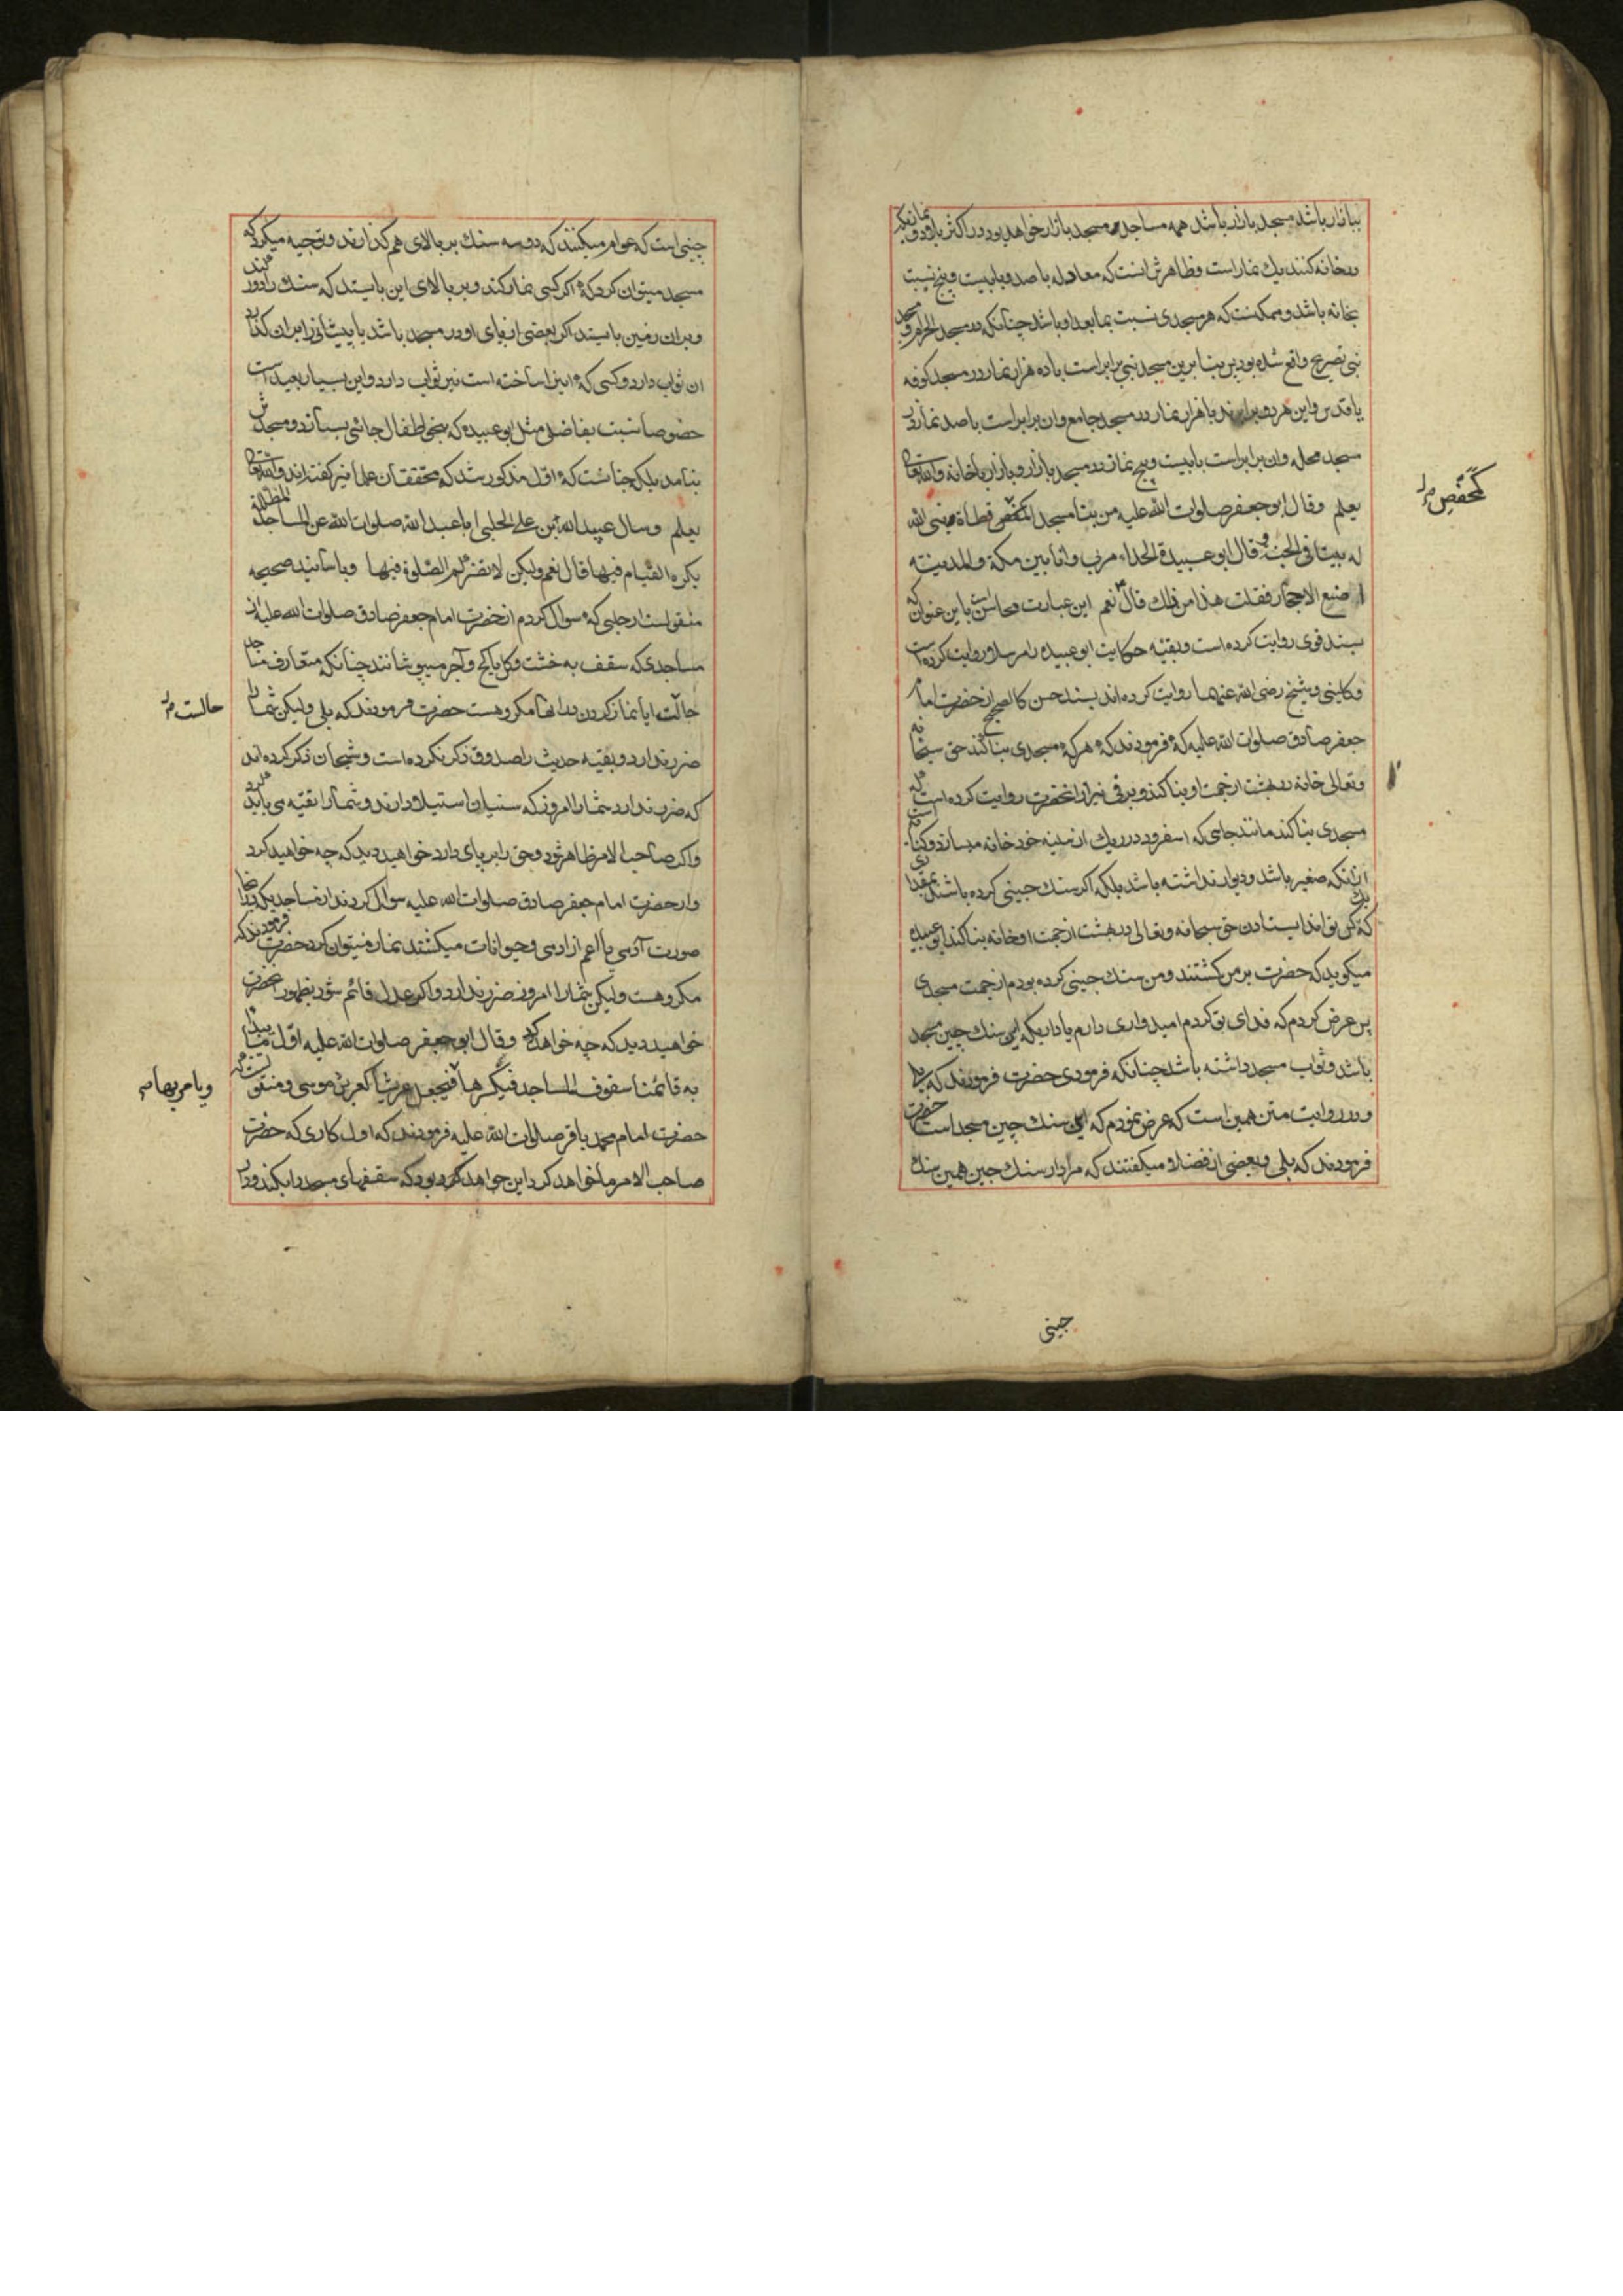 ببازار باشد مسجد بازار باشد همه مساجد مسجد بازار خواهد بود و در اکثر بلاد و نمازیکه
درخانه کنند یك نماز است و ظاهرش انست که معادله با صد و با بیست و پنج نسبت
بخانه باشد و ممکنست که هر مسجدی نسبت بمابعد او باشد چنانکه در مسجد الحرام و مسجد
نبی تصریح واقع شده بود پس بنا برین مسجد نبی برابر است با ده هزار نماز در مسجد کوفه
یا قدس و این هر دو برابرند با هزار نماز در مسجد جامع و ان برابر است با صد نماز در
مسجد محله و ان برابر است با بیست و پنج نماز در مسجد بازار و بازار با خانه والله تعالی
یعلم وقال ابو جعفر صلوات الله علیه من بنا مسجدا کمفحص قطاة بنی الله
له بیتا فی الجنة و قال ابو عبیدة الحذاء مر بی وانا بین مکة والمدینة
اضع الاحجار فقلت هذا من ذلك قال نعم این عبارت محاسن است باین عنوان که
بسند قوی روایت کرده است و بقیه حکایت ابو عبیده را مرسلا روایت کرده است
و کلینی و شیخ رضی الله عنهما روایت کرده اند بسند حسن کالصحیح از حضرت امام
جعفر صادق صلوات الله علیه که فرمودند که هر که مسجدی بنا کند حق سبحانه
و تعالی خانه در بهشت از جهت او بنا کند و برقی نیز از انحضرت روایت کرده است که
مسجدی بنا کند مانند جایی که اسفرود در ریك از سینه خود خانه میسازد و کنایه است
از انکه صغیر باشد و دیوار نداشته باشد بلکه اکر سنك چینی کرده باشند بمقداری
که یك کس تواند ایستادن حق سبحانه و تعالی در بهشت از جهت او خانه بنا کند ابو عبیده
میکوید که حضرت بر من کشتند و من سنك چینی کرده بودم از جهت مسجدی
پس عرض کردم که فدای تو کردم امیدواری دارم یا داریکه این سنك چین مسجد
باشد و ثواب مسجد داشته باشد چنانکه فرمودی حضرت فرمودند که بلی
و در روایت متن همین است که عرض نمودم که این سنك چین مسجد است حضرت
فرمودند که بلی و بعضی از فضلا میکفتند که مراد از سنك چین همین سنك
کمفحص
چینی
چینی است که عوام میکنند که دو سه سنك بر بالای هم کذارند و توجیه میکردکه
مسجد میتوان کرد که اکر کسی نماز کند و بر بالای این بایستد که سنك را دور کند
و بران زمین بایستد اکر بعضی از پای او در مسجد باشد یا پیشانی را بران کذارد
ان ثواب دارد و کسی که این را ساخته است نیز ثواب دارد و این بسیار بعید است
خصوصا نسبت بفاضلی مثل ابو عبیده که بنحو اطفال جائی بسازد و مسجدش
بنامد بلکه چنانست که اول مذکور شد که محققان علما نیز کفته اند والله تعالی
یعلم وسال عبید الله بن علی الحلبی ابا عبد الله صلوات الله عن المساجد المظللة
یکره القیام فیها قال نعم ولیکن لا تضرکم الصلوة فیها و باسانید صحیحه
منقولست از حلبی که سوال کردم از حضرت امام جعفر صادق صلوات الله علیه از
مساجدی که سقف به خشت و کل یا کچ و آجر میپوشانند چنانکه متعارف مساجد
حالست ایا نماز کردن در انها مکروهست حضرت فرمودند که بلی ولیکن شما را
ضرر ندارد و بقیه حدیث را صدوق ذکر نکرده است و شیخان ذکر کرده اند
که ضرر ندارد شما را امروز که سنیان استیلا دارند و شما را تقیه می باید کرد
و اکر صاحب الامر ظاهر شود و حق را بر پای دارد خواهید دید که چه خواهید کرد
و از حضرت امام جعفر صادق صلوات الله علیه سوال کردند از مساجدیکه در انها
صورت آدمی یا اعم از ادمی و حیوانات میکشند نماز میتوان کرد حضرت فرمودند که
مکروهست ولیکن شما را امروز ضرر ندارد و اکر عدل قائم شود بظهور انحضرت
خواهید دید که چه خواهد کرد وقال ابو جعفر صلوات الله علیه اول ما یبدأ
به قائمنا سقوف المساجد فیکسرها فیجعل عریشا کعریش موسی و منقولست که
حضرت امام محمد باقر صلوات الله علیه فرمودند که اول کاری که حضرت
صاحب الامر ما خواهد کرد این خواهد بود که سقفهای مسجد را بکند و دران
حالست
ویامر بها